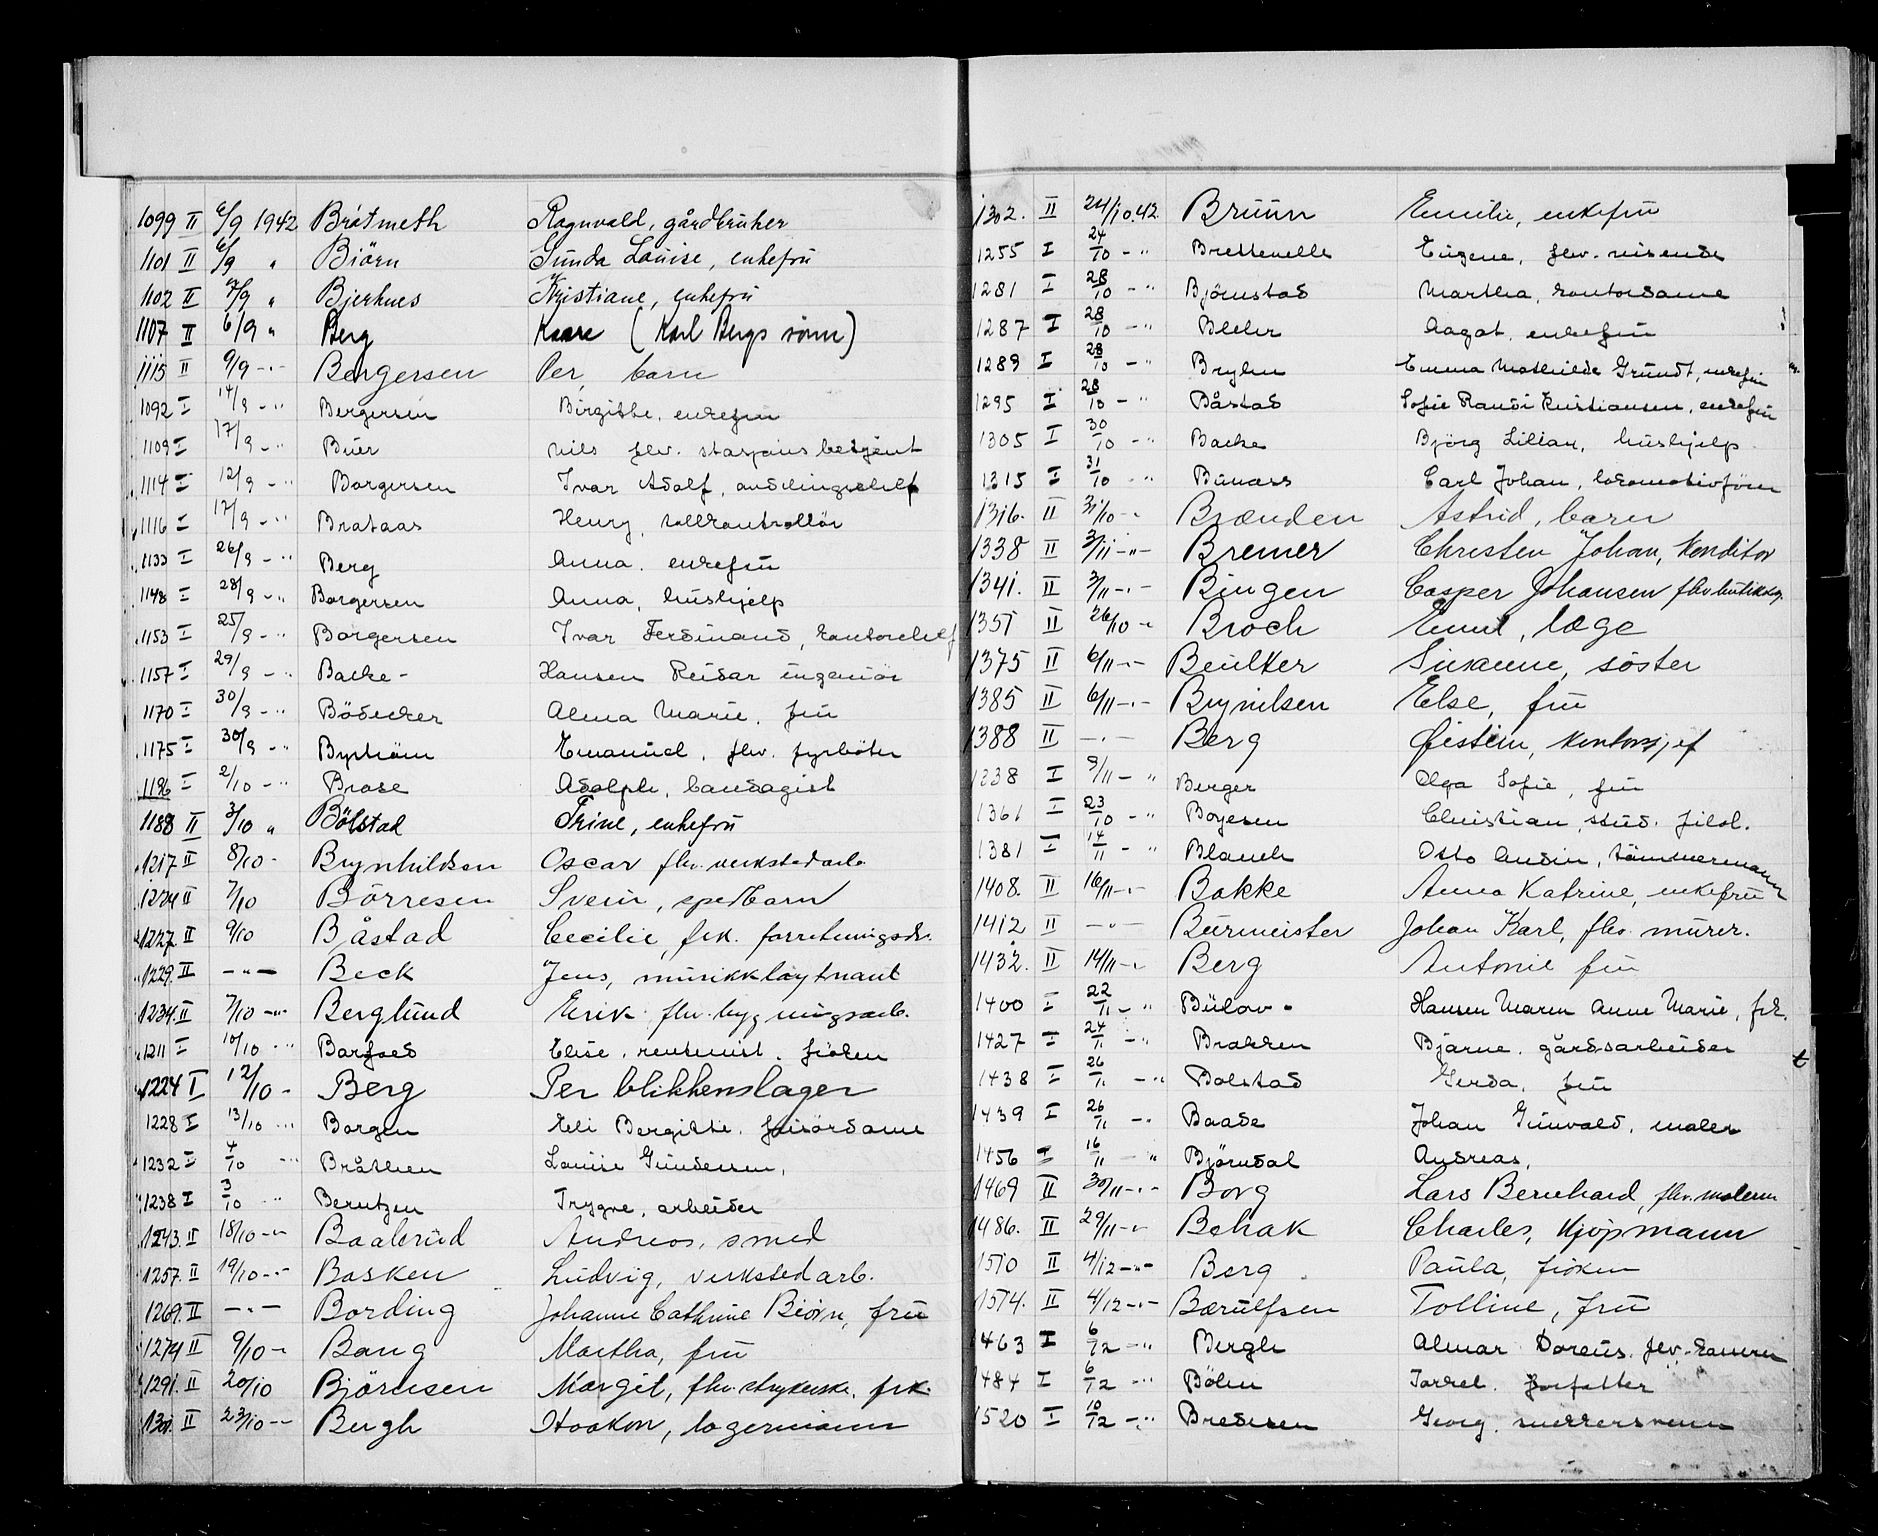 1099 II 6/9 1942 Bråtmeth Ragnvald, gårdbruker
1101 II 6/9 " Biörn Gunda Louise, enkefru
1102 II 7/9 " Bjerknes Kristiane, enkefru
1107 II 6/9 " Berg Kaare (Karl Bergs sönn)
1115 II 9/9 -"- Bergersen Per, barn
1092 I 14/9 -"- Bergersen Birgitte, enkefru
1109 I 17/9 -"- Buer Nils flv. stasjonsbetjent
1114 I 12/9 -"- Borgersen Ivar Adolf, avdelingschef
1116 I 17/9 -"- Brataas Henry, tollkontrollör
1133 I 26/9 -"- Berg Anna, enkefru
1148 I 28/9 -"- Borgersen Anna, hushjelp
1153 I 25/9 -"- Borgersen Ivar Ferdinand, kontorchef
1157 I 29/9 -"- Backe- Hansen Reidar ingeniör
1170 I 30/9 -"- Bödecker Alma Marie, fru
1175 I 30/9 -"- Byström Emanuel, flv. fyrböter
1186 I 2/10 -"- Brose Adolph, bandagist
1188 II 3/10 " Bölstad Trine, enkefru
1217 II 8/10 - Brynhildsen Oscar flv. verkstedarb.
1224 II 7/10 Börresen Svein, spedbarn
1227 II 9/10 Båstad Cecilie, frk. forretningsdr.
1229. II -"- Beck Jens, musikkløytnant
1234. II 7/10 -"- Berglund Erik flv. bygningsarb.
1211 I 10/10 -"- Barfoed Elise, rentenist, fröken
1224 I 12/10 - Berg Per blikkenslager
1228 I 13/10 -"- Borgen Eli Bergitte, frisördame
1232 I 4/10 -"- Bråthen Louise Gundersen,
1238 I 3/10 -"- Berntzen Trygve, arbeider
1243. II 18/10 -"- Baalsrud Andreas, smed
1257. II 19/10 -"- Basken Ludvig, verkstedarb.
1269. II -"- Bording Johanne Cathrine Biörn, fru
1274 II 9/10 -"- Bang Martha, fru
1291. II 20/10 Björnsen Margit, flv. strykerske, frk.
1301. II 23/10 -"- Bergh Haakon, lagermann
1302. II 24/10.42 Bruun Emilie, enkefru
1255 I 24/10 -"- Brettevelle Eugene, flv. reisende
1281 I 28/10 -"- Björnstad Martha, kontordame
1287 I 28/10 -"- Aagot, enkefru
1289 I 28/10 -"- Bryhn Emma Mathilde Grundt, enkefru
1295 I 28/10 -"- Båstad Sofie Randi Kristiansen, enkefru
1305 I 30/10 -"- Backe Björg Lilian, hushjelp
1315 I 31/10 -"- Bunæss Carl Johan, lokomotivförer
1316. II 31/10 -"- Brænden Astrid, barn
1338 II 3/11 -"- Bremer Christen Johan, Konditor
1341. II 3/11 -"- Bingen Casper Johansen flv. butikkbg.
1351 II 26/10 -"- Broch Emil, læge
1375 II 6/11 -"- Beulker Susanne, söster
1385 II 6/11 -"- Brynilsen Else, fru
1388 II -"- Berg Øistein, kontorsjef
1338 I 9/11 -"- Berger Olga Sofie, fru
1361 I 23/10 -"- Boyesen Christian, stud. filol.
1381 I 14/11 -"- Blanch Otto Audin, tömmermann
1408. II 16/11 -"- Bakke Anna Katrine, enkefru
1412 II -"- Burmeister Johan Karl, flv. murer.
1432. II 14/11 -"- Berg Antonie fru
1400 I 22/11 -"- Bülow- Hansen Maren Anne Marie, frk.
1427 I 24/11 -"- Brakken Bjarne, gårdsarbeider
1438 I 26/11 -"- Bolstad Gerda, fru
1439 I 26/11 -"- Baade Johan Gunvald, maler
1456 I 16/11 -"- Björndal Andreas,
1469 II 30/11 -"- Borg Lars Bernhard, flv. malerm
1486. II 29/11 -"- Behak Charles, Kjøpmann
1510 II 4/12 -"- Berg Paula, fröken
1514. II 4/12 -"- Bærulfsen Tolline, fru
1463 I 6/12 -"- Bergh Almar Doreus, flv.
1484 I 6/12 -"- Böhn Torkel, forfatter
1520 I 10/12 -"- Bredesen Georg, snekkersvenn